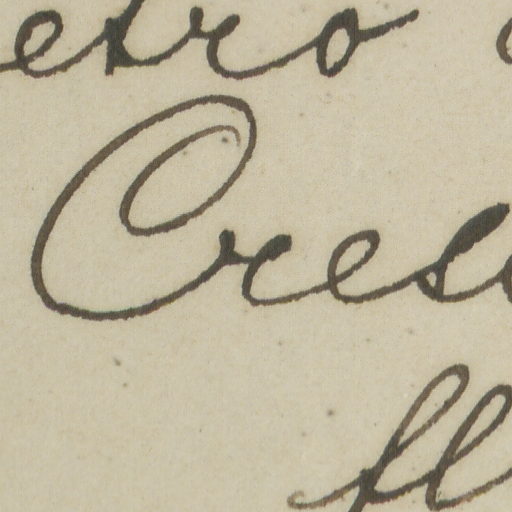 etro
Cres
fl